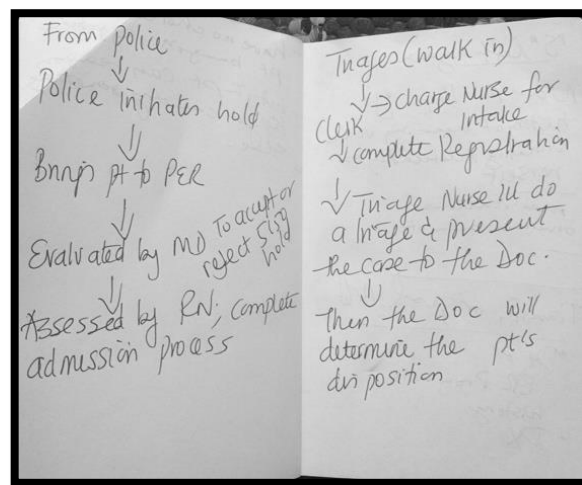 From police
↓
Police initiates hold
⇓
Brings pt to PER
⇓
Evaluated by MD To accept or
reject 5150
hold
⇓
Assessed by RN; complete
admission process
Triages (walk in)
↓→ charge Nurse for
Clerk Intake
↓ complete Registration
↓ Triage Nurse ill do
a triage & present
the case to the Doc.
⇓
Then the Doc will
determine the pt's
disposition